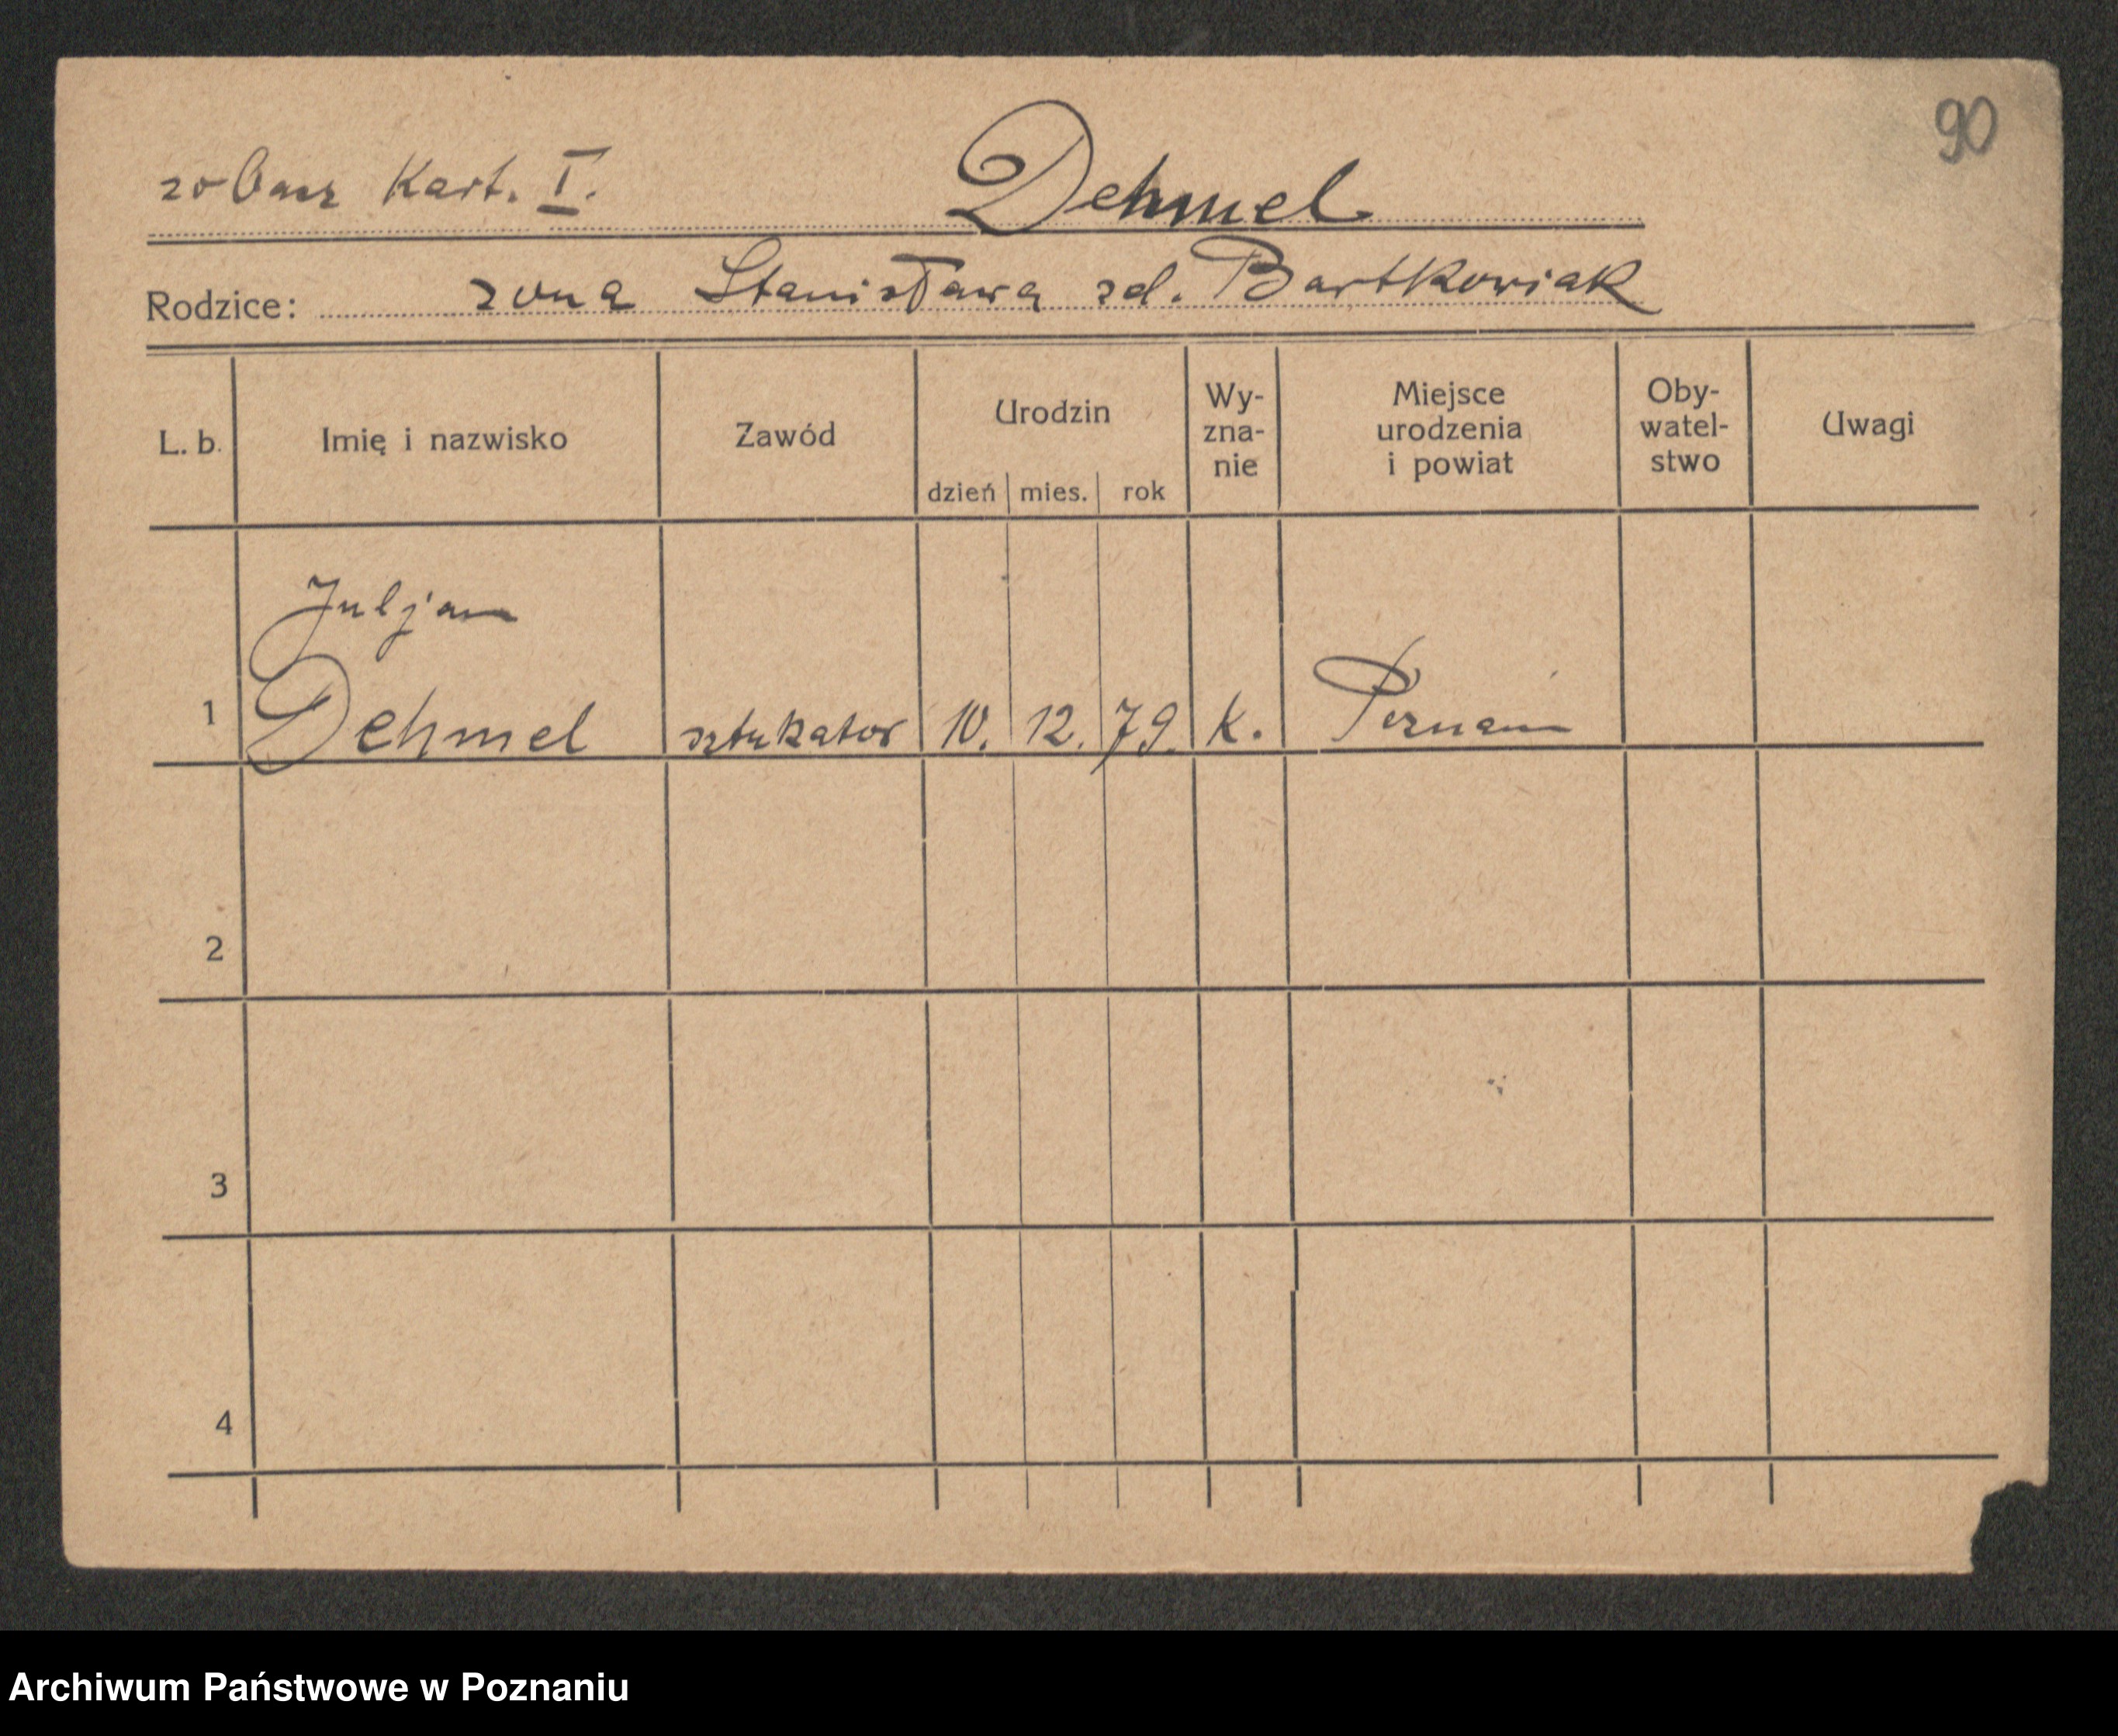 90
zobacz Kart. I.
Dehmel
Rodzice: zona Stanisława zd. Bartkowiak
L. b. Imię i nazwisko Zawód Urodzin dzień mies. rok Wy-zna-nie Miejsce urodzenia i powiat Oby-watel-stwo Uwagi
Juljan
1 Dehmel sztukator 10. 12. 79. k. Poznań
2
3
4
Archiwum Państwowe w Poznaniu